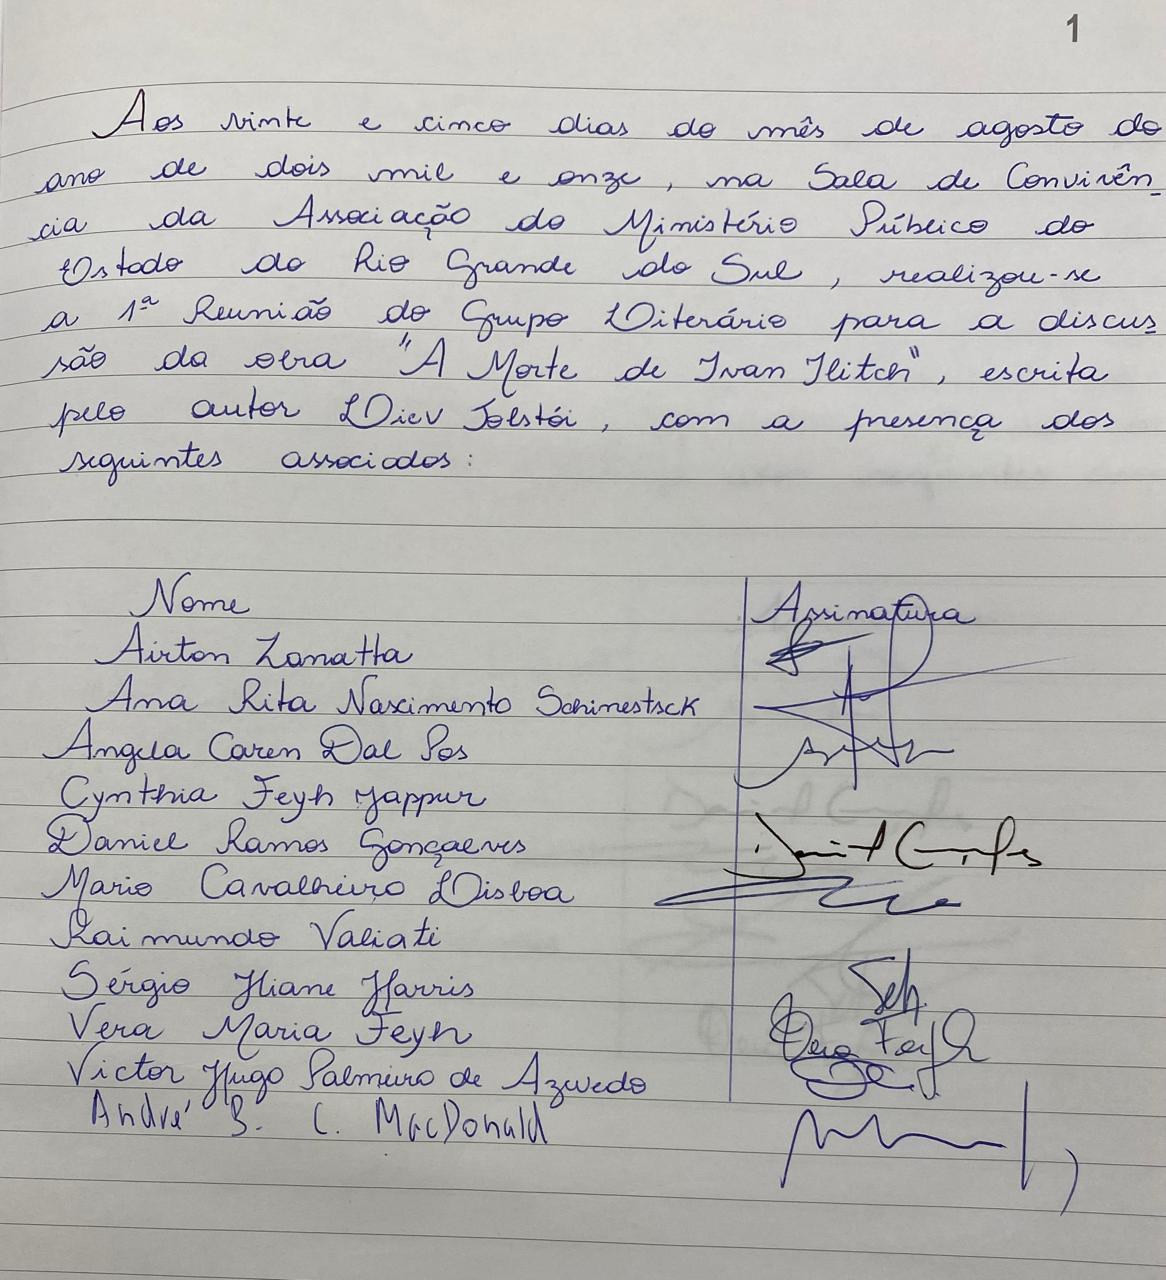 1
Aos vinte e cinco dias do mês de agosto do
ano de dois mil e onze, na Sala de Convivên_
cia da Associação do Ministério Público do
Estado do Rio Grande do Sul, realizou-se
a 1ª Reunião do Grupo Literário para a discus_
são da obra "A Morte de Ivan Ilitch", escrita
pelo autor Liev Tolstói, com a presença dos
seguintes associados:
Nome Assinatura
Airton Zanatta
Ana Rita Nascimento Schinestsck
Angela Caren Dal Pos
Cynthia Feyh Jappur
Daniel Ramos Gonçalves
Mario Cavalheiro Lisboa
Raimundo Valiati
Sérgio Hiane Harris
Vera Maria Feyh Vera Feyh
Victor Hugo Palmeiro de Azevedo
André B. C. MacDonald